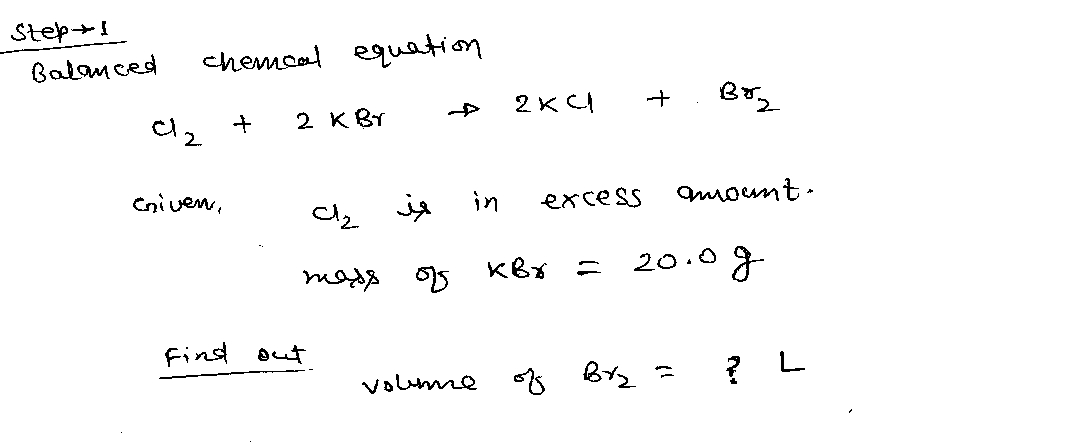 Step→1
Balanced chemcal equation
Cl₂ + 2 KBr → 2KCl + Br₂
Given, Cl₂ is in excess amount.
mass of KBr = 20.0 g
Find out
volume of Br₂ = ? L